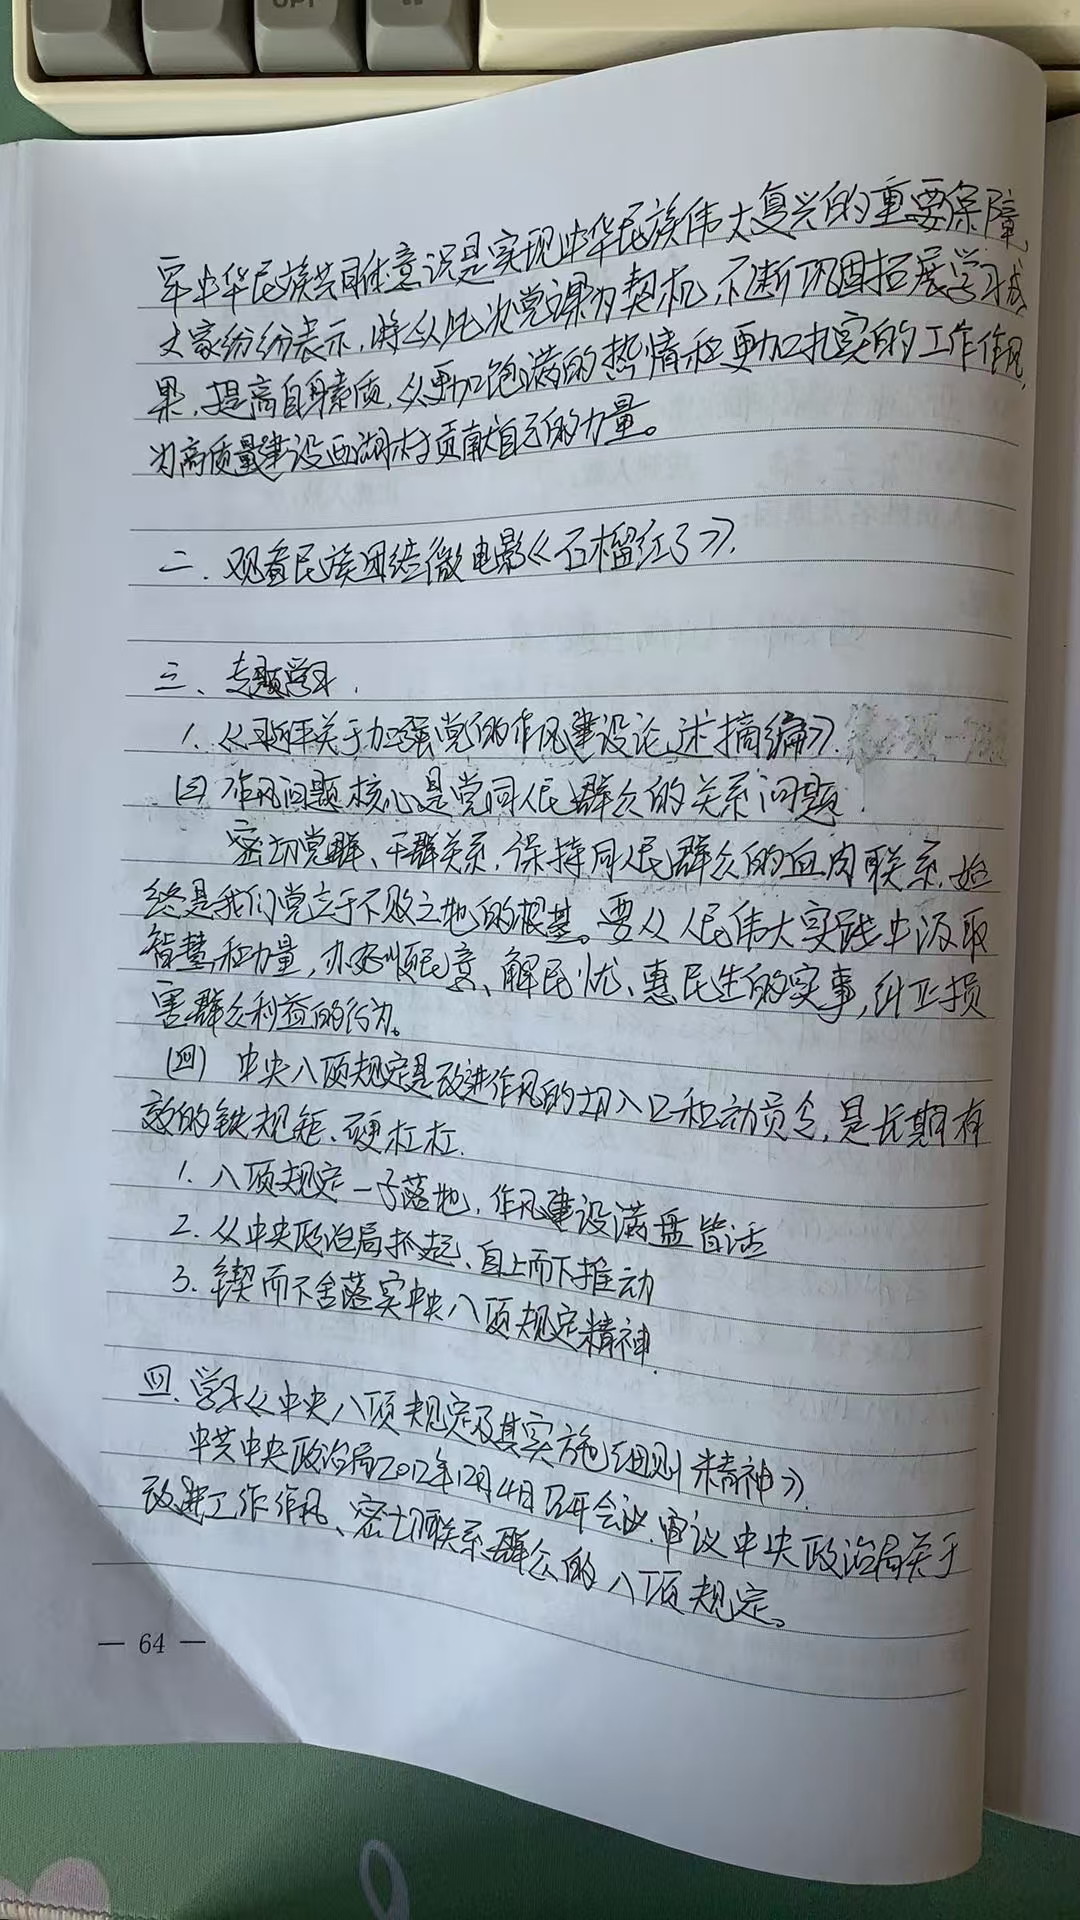 牢中华民族共同体意识是实现中华民族伟大复兴的重要保障,
大家纷纷表示,将以此次党课为契机,不断巩固拓展学习成
果,提高自身素质,以更加饱满的热情和更加扎实的工作作风,
为高质量建设西湖村贡献自己的力量。
二.观看民族团结微电影《石榴红了》.
三、专题学习.
1.《习近平关于加强党的作风建设论述摘编》.
(三)作风问题核心是党同人民群众的关系问题.
密切党群、干群关系,保持同人民群众的血肉联系,始
终是我们党立于不败之地的根基。要从人民伟大实践中汲取
智慧和力量,办好顺民意、解民忧、惠民生的实事,纠正损
害群众利益的行为。
(四)中央八项规定是改进作风的切入口和动员令,是长期有
效的铁规矩、硬杠杠.
1.八项规定一子落地,作风建设满盘皆活
2.从中央政治局抓起、自上而下推动
3.锲而不舍落实中央八项规定精神.
四.学习《中央八项规定及其实施细则精神》.
中共中央政治局2012年12月4日召开会议,审议中央政治局关于
改进工作作风、密切联系群众的八项规定。
— 64 —